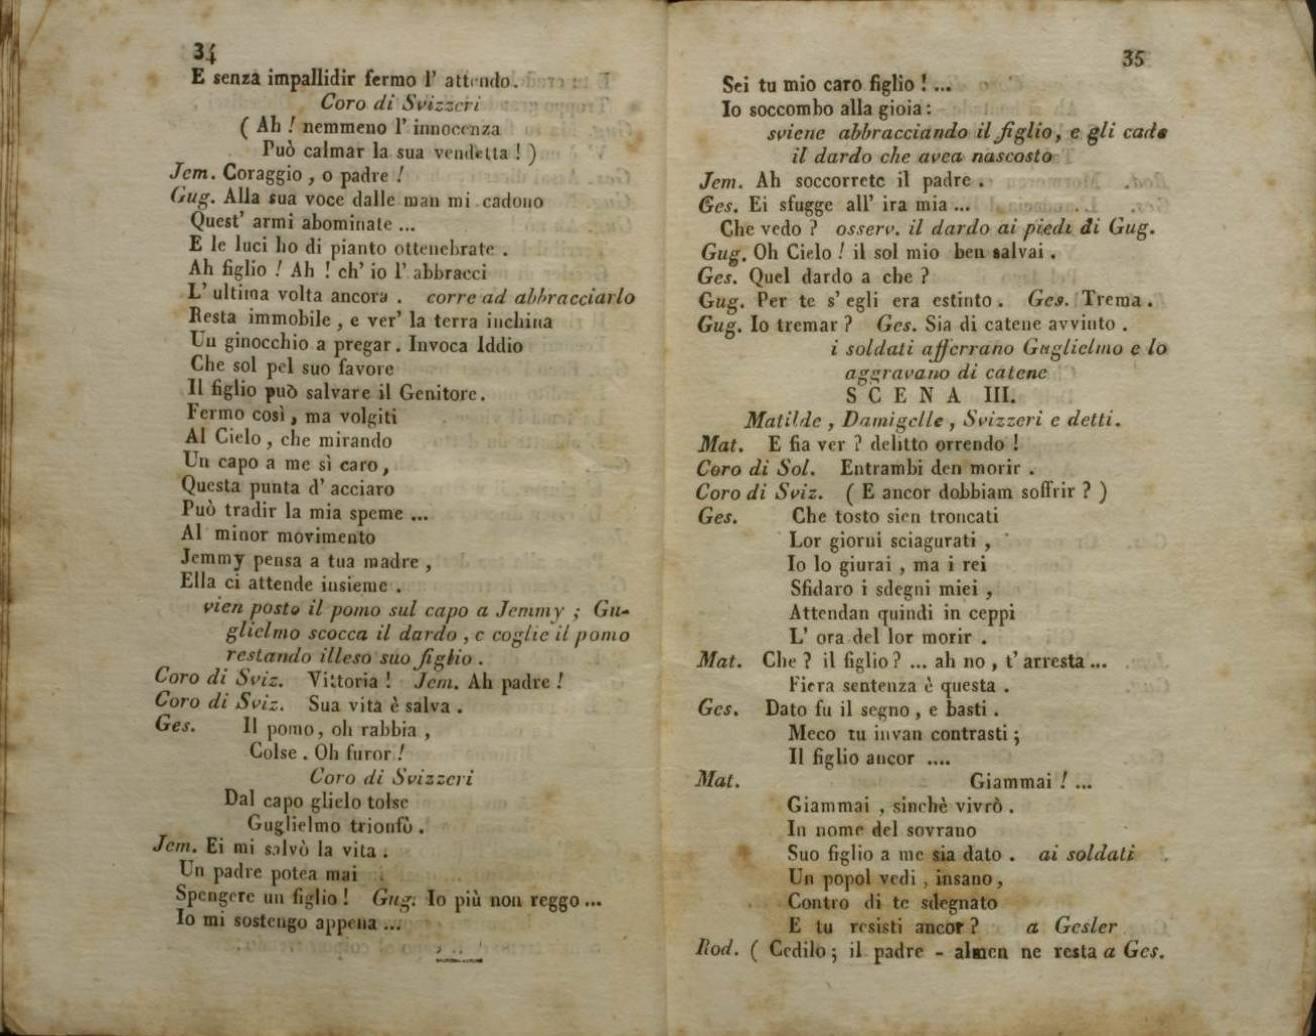 34
E senza impallidir fermo l' attendo.
Coro di Svizzeri
( Ah ! nemmeno l' innocenza
Può calmar la sua vendetta ! )
Jem. Coraggio , o padre !
Gug. Alla sua voce dalle man mi cadono
Quest' armi abominate ...
E le luci ho di pianto ottenebrate .
Ah figlio ! Ah ! ch' io l' abbracci
L' ultima volta ancora . corre ad abbracciarlo
Resta immobile , e ver' la terra inchina
Un ginocchio a pregar . Invoca Iddio
Che sol pel suo favore
Il figlio può salvare il Genitore.
Fermo così , ma volgiti
Al Cielo , che mirando
Un capo a me sì caro ,
Questa punta d' acciaro
Può tradir la mia speme ...
Al minor movimento
Jemmy pensa a tua madre ,
Ella ci attende insieme .
vien posto il pomo sul capo a Jemmy ; Gu-
glielmo scocca il dardo , e coglie il pomo
restando illeso suo figlio .
Coro di Sviz. Vittoria ! Jem. Ah padre !
Coro di Sviz. Sua vita è salva .
Ges. Il pomo, oh rabbia ,
Colse . Oh furor !
Coro di Svizzeri
Dal capo glielo tolse
Guglielmo trionfò .
Jem. Ei mi salvò la vita .
Un padre potea mai
Spengere un figlio ! Gug. Io più non reggo ...
Io mi sostengo appena ...
35
Sei tu mio caro figlio ! ...
Io soccombo alla gioia :
sviene abbracciando il figlio, e gli cade
il dardo che avea nascosto
Jem. Ah soccorrete il padre .
Ges. Ei sfugge all' ira mia ...
Che vedo ? osserv. il dardo ai piedi di Gug.
Gug. Oh Cielo ! il sol mio ben salvai .
Ges. Quel dardo a che ?
Gug. Per te s' egli era estinto . Ges. Trema .
Gug. Io tremar ? Ges. Sia di catene avvinto .
i soldati afferrano Guglielmo e lo
aggravano di catene
SCENA III.
Matilde , Damigelle , Svizzeri e detti.
Mat. E fia ver ? delitto orrendo !
Coro di Sol. Entrambi den morir .
Coro di Sviz. ( E ancor dobbiam soffrir ? )
Ges. Che tosto sien troncati
Lor giorni sciagurati ,
Io lo giurai , ma i rei
Sfidaro i sdegni miei ,
Attendan quindi in ceppi
L' ora del lor morir .
Mat. Che ? il figlio ? ... ah no , t' arresta ...
Fiera sentenza è questa .
Ges. Dato fu il segno , e basti .
Meco tu invan contrasti ;
Il figlio ancor ....
Mat. Giammai ! ...
Giammai , sinchè vivrò .
In nome del sovrano
Suo figlio a me sia dato . ai soldati
Un popol vedi , insano ,
Contro di te sdegnato
E tu resisti ancor ? a Gesler
Rod. ( Cedilo ; il padre - almen ne resta a Ges.